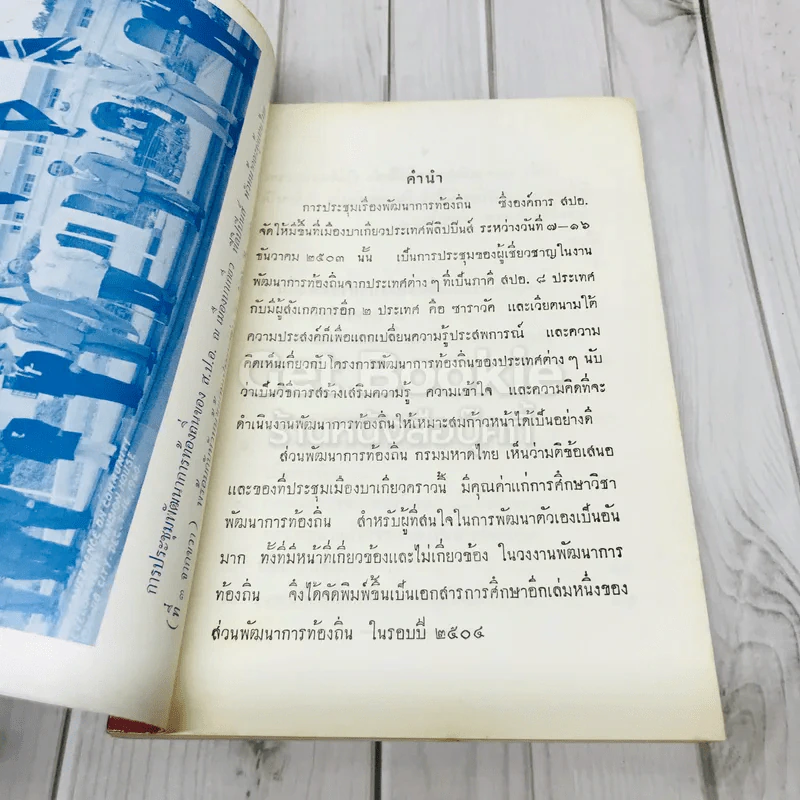 การประชุมพัฒนาการท้องถิ่นของ ส.ป.อ. ณ เมืองบาเกียว
คำนำ
การประชุมเรื่องพัฒนาการท้องถิ่น ซึ่งองค์การ สปอ.
จัดให้มีขึ้นที่เมืองบาเกียวประเทศฟิลิปปินส์ ระหว่างวันที่ ๗–๑๖
ธันวาคม ๒๕๐๓ นั้น เป็นการประชุมของผู้เชี่ยวชาญในงาน
พัฒนาการท้องถิ่นจากประเทศต่าง ๆ ที่เป็นภาคี สปอ. ๘ ประเทศ
กับมีผู้สังเกตการอีก ๒ ประเทศ คือ ซาราวัค และเวียดนามใต้
ความประสงค์ก็เพื่อแลกเปลี่ยนความรู้ประสพการณ์ และความ
คิดเห็นเกี่ยวกับโครงการพัฒนาการท้องถิ่นของประเทศต่าง ๆ นับ
ว่าเป็นวิธีการสร้างเสริมความรู้ ความเข้าใจ และความคิดที่จะ
ดำเนินงานพัฒนาการท้องถิ่นให้เหมาะสมก้าวหน้าได้เป็นอย่างดี
ส่วนพัฒนาการท้องถิ่น กรมมหาดไทย เห็นว่ามติข้อเสนอ
และของที่ประชุมเมืองบาเกียวคราวนี้ มีคุณค่าแก่การศึกษาวิชา
พัฒนาการท้องถิ่น สำหรับผู้ที่สนใจในการพัฒนาตัวเองเป็นอัน
มาก ทั้งที่มีหน้าที่เกี่ยวข้องและไม่เกี่ยวข้อง ในวงงานพัฒนาการ
ท้องถิ่น จึงได้จัดพิมพ์ขึ้นเป็นเอกสารการศึกษาอีกเล่มหนึ่งของ
ส่วนพัฒนาการท้องถิ่น ในรอบปี ๒๕๐๔
Get Bookie
ร้านหนังสือบุ๊คกี้